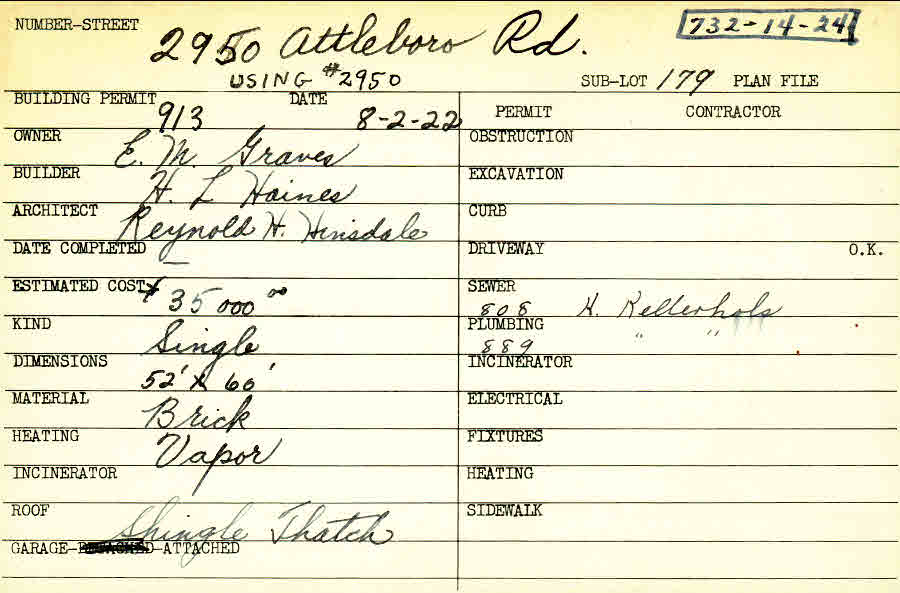 NUMBER-STREET 2950 Attleboro Rd. 732-14-24
USING #2950 SUB-LOT 179 PLAN FILE
BUILDING PERMIT 913 DATE 8-2-22
OWNER E. M. Graves
BUILDER H. L Haines
ARCHITECT Reynold H. Hinsdale
DATE COMPLETED —
ESTIMATED COST $ 35 000 00
KIND Single
DIMENSIONS 52' X 60'
MATERIAL Brick
HEATING Vapor
INCINERATOR
ROOF Shingle Thatch
GARAGE-DETACHED-ATTACHED
PERMIT CONTRACTOR
OBSTRUCTION
EXCAVATION
CURB
DRIVEWAY O.K.
SEWER 808 H. Kellerhols
PLUMBING 889 " "
INCINERATOR
ELECTRICAL
FIXTURES
HEATING
SIDEWALK